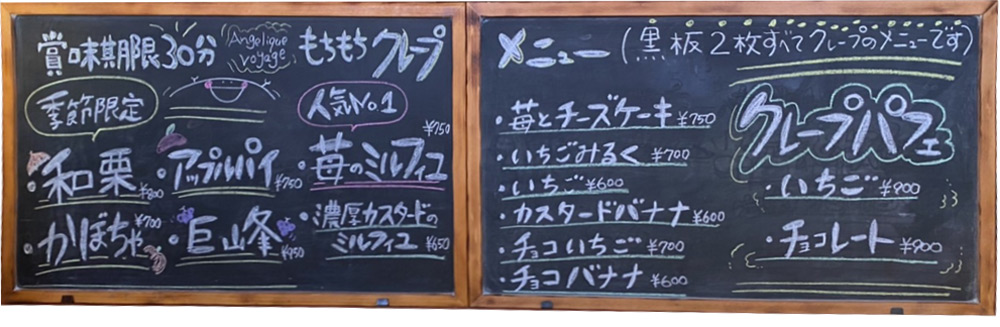 賞味期限30分
Angelique
voyage
もちもちクレープ
季節限定
人気No1
和栗 ¥800
アップルパイ ¥750
苺のミルフィユ ¥750
かぼちゃ ¥700
巨峰 ¥950
濃厚カスタードの
ミルフィユ ¥650
メニュー(黒板2枚すべてクレープのメニューです)
・苺とチーズケーキ ¥750
・いちごみるく ¥700
・いちご ¥600
・カスタードバナナ ¥600
・チョコいちご ¥700
・チョコバナナ ¥600
クレープパフェ
・いちご ¥900
・チョコレート ¥900